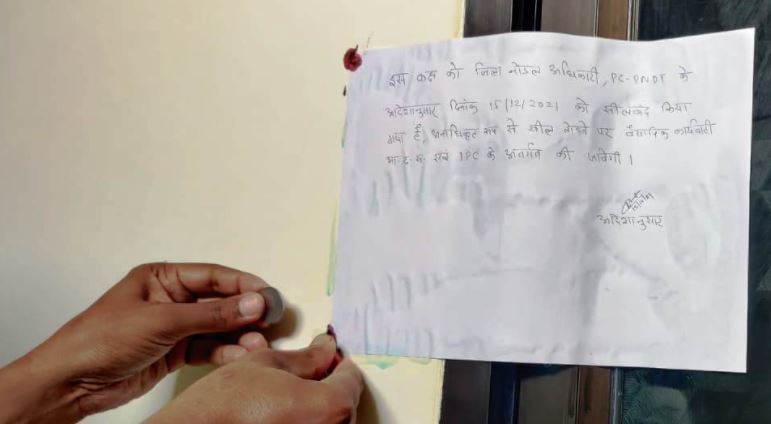 इस कक्ष को जिला नोडल अधिकारी, PC-PNDT के
आदेशानुसार दिनांक 15/12/2021 को सीलबंद किया
गया है, अनाधिकृत रूप से सील तोड़ने पर वैधानिक कार्यवाही
भा.द.स. एवं IPC के अंतर्गत की जावेगी ।
आदेशानुसार